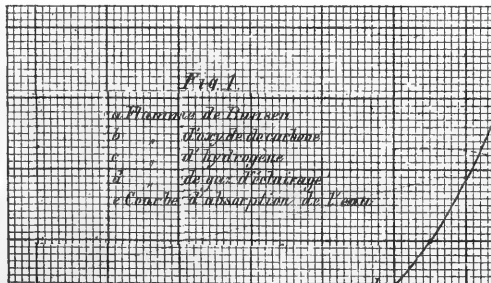 Fig. 1.
a Flamme de Bunsen
b „ d'oxyde de carbone
c „ d'hydrogene
d „ de gaz d'éclairage
e Courbe d'absorption de l'eau